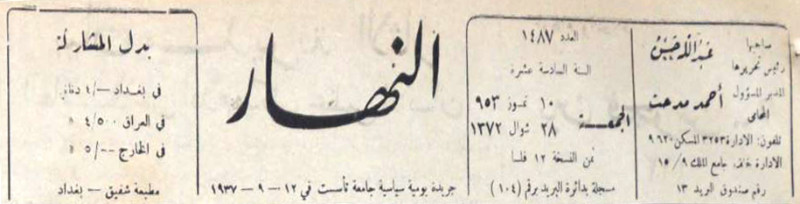 صاحبها
رئيس تحريرها
عبد الله حسين
المدير المسؤول
المحامي
أحمد مدحت
تلفون: الادارة ٣٢٥٣ المسكن ٩٦٢٠
الادارة خلف جامع الملك ١٥/٩
رقم صندوق البريد ١٣
العدد ١٤٨٧
السنة السادسة عشرة
الجمعة
١٠ تموز ٩٥٣
٢٨ شوال ١٣٧٢
ثمن النسخة ١٢ فلسا
مسجلة بدائرة البريد برقم (١٠٤)
النهار
جريدة يومية سياسية جامعة تأسست في ١٢ - ٩ - ١٩٣٧
بدل المشاركة
في بغداد -/٤ دنانير
في العراق ٤/٥٠٠ »
في الخارج -/٥ »
مطبعة شفيق - بغداد